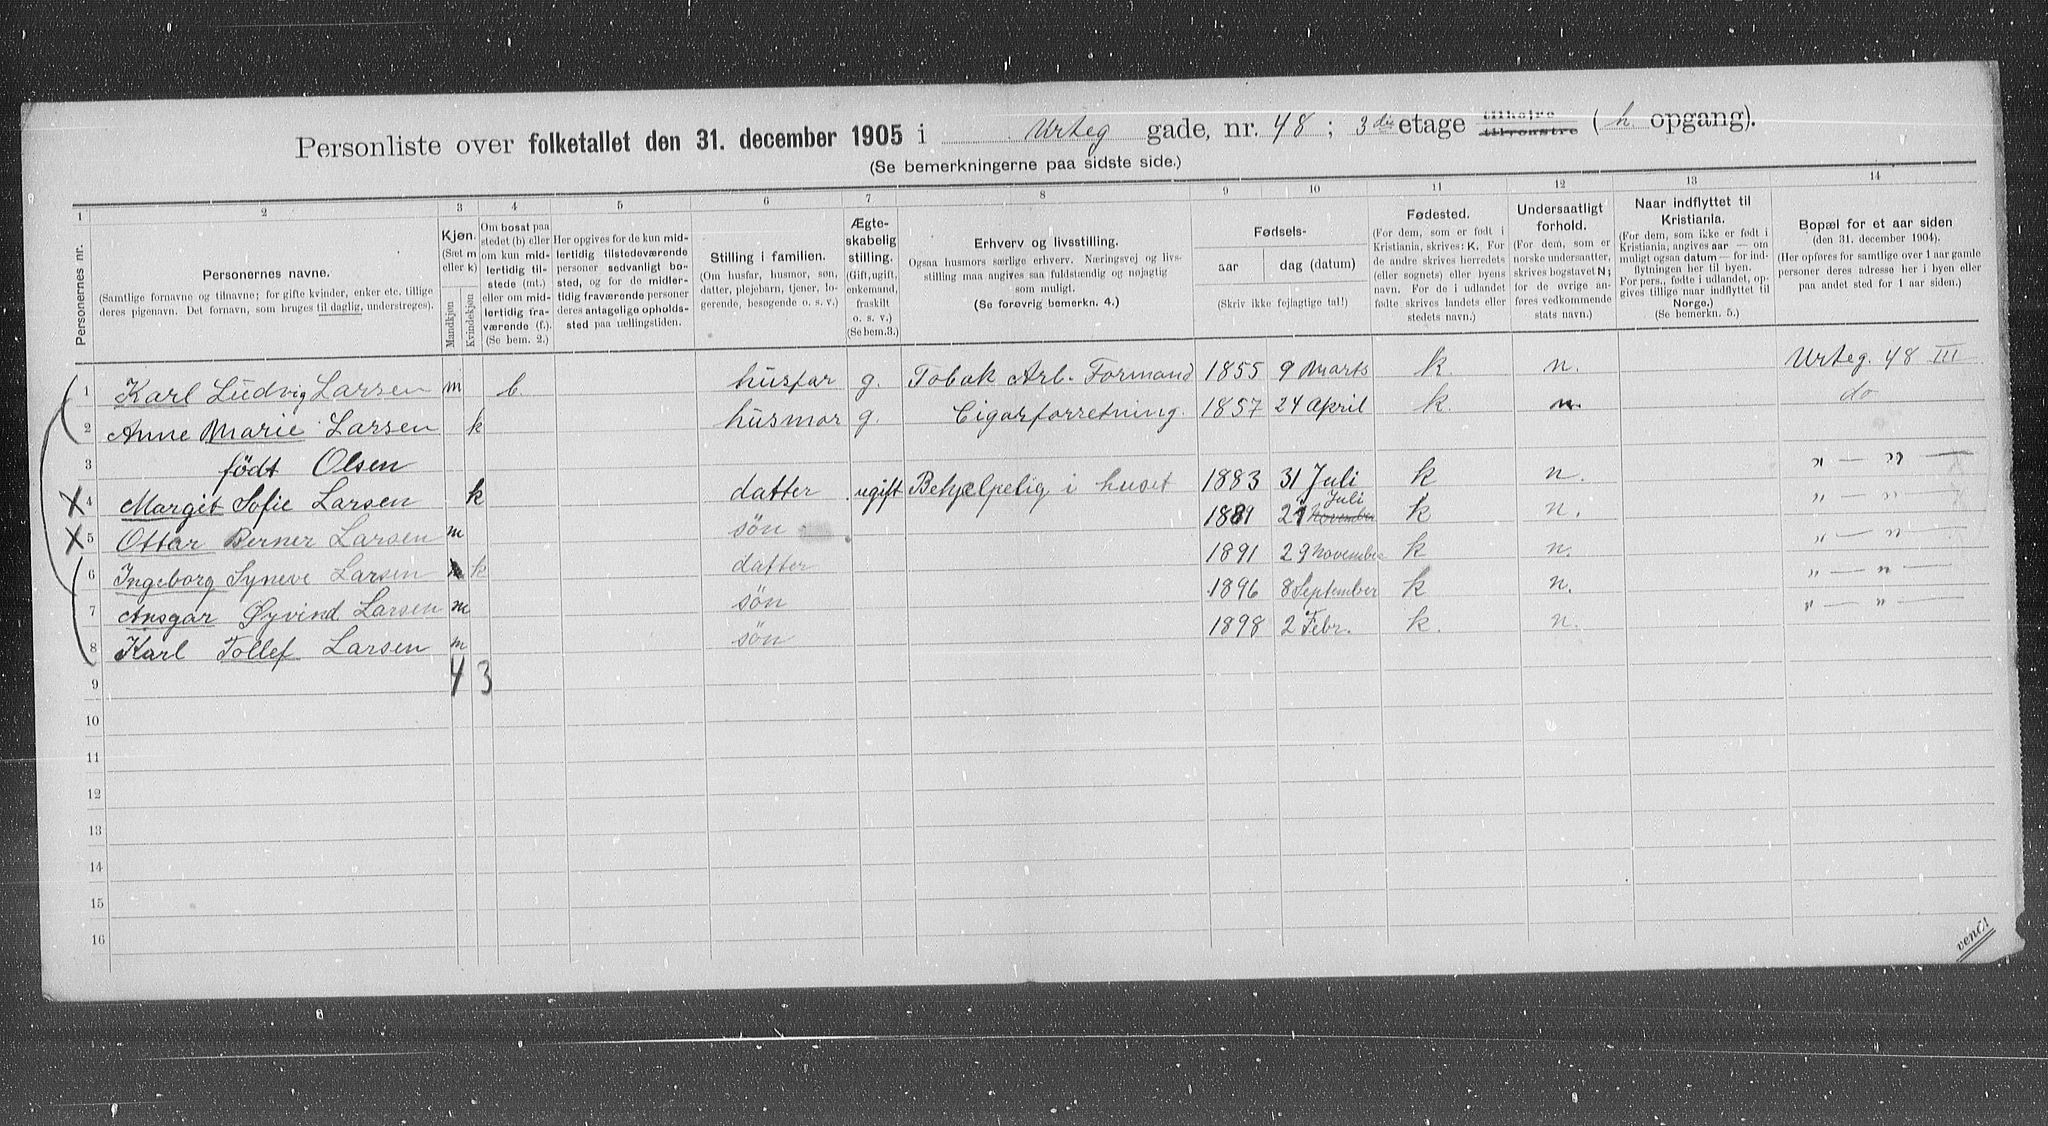 Personliste over folketallet den 31. december 1905 i Urteg gade, nr. 48; 3die etage tilhøjre tilvenstre (h. opgang).
(Se bemerkningerne paa sidste side.)
1 2 3 4 5 6 7 8 9 10 11 12 13 14
Personernes nr.
Personernes navne.
(Samtlige fornavne og tilnavne; for gifte kvinder, enker etc. tillige
deres pigenavn. Det fornavn, som bruges til daglig, understreges).
Kjøn.
(Sæt m
eller k)
Mandkjøn
Kvindekjøn
Om bosat paa
stedet (b) eller
om kun mid-
lertidig til-
stede (mt.)
eller om mid-
lertidig fra-
værende (f.).
(Se bem. 2.)
Her opgives for de kun mid-
lertidig tilstedeværende
personer sedvanlig bo-
sted, og for de midler-
tidig fraværende personer
deres antagelige opholds-
sted paa tællingstiden.
Stilling i familien.
(Om husfar, husmor, søn,
datter, plejebarn, tjener, lo-
gerende, besøgende o. s. v.)
Ægte-
skabelig
stilling.
(Gift, ugift,
enkemand,
fraskilt
o. s. v.)
(Se bem.3.)
Erhverv og livsstilling.
Ogsaa husmors særlige erhverv. Næringsvej og livs-
stilling maa angives saa fuldstændig og nøjagtig
som muligt.
(Se forøvrig bemerkn. 4.)
Fødsels-
aar dag (datum)
(Skriv ikke fejlagtige tal!)
Fødested.
(For dem, som er født i
Kristiania, skrives: K. For
de andre skrives herredets
(eller sognets) eller byens
navn. For de i udlandet
fødte skrives landets eller
stedets navn.)
Undersaatligt
forhold.
(For dem, som er
norske undersaatter,
skrives bogstavet N;
for de øvrige an-
føres vedkommende
stats navn.)
Naar indflyttet til
Kristiania.
(For dem, som ikke er født i
Kristiania, angives aar — om
muligt ogsaa datum — for ind-
flytningen her til byen.
For pers., fødte i udlandet, op-
gives tillige naar indflyttet til
Norge.)
(Se bemerkn. 5.)
Bopæl for et aar siden
(den 31. december 1904).
(Her opføres for samtlige over 1 aar gamle
personer deres adresse her i byen eller
paa andet sted for 1 aar siden.)
1 Karl Ludvig Larsen m b. husfar g. Tobak Arb. Formand 1855 9 Marts k n. Urteg. 48 III
2 Anne Marie Larsen k husmor g. Cigarforretning. 1857 24 April k. n. do
3 født Olsen
4 Margit Sofie Larsen k datter ugift Behjælpelig i huset 1883 31 Juli k n. „ — „ —
5 Ottar Berner Larsen m søn 1889 21 November Juli k n. „ — „ —
6 Ingeborg Syneve Larsen k datter 1891 29 November k n. „ — „ —
7 Ansgar Øyvind Larsen m søn 1896 8 September k n. „ — „ —
8 Karl Tollef Larsen m søn 1898 2 Febr. k. n. „ — „ —
9 4 3
10
11
12
13
14
15
16